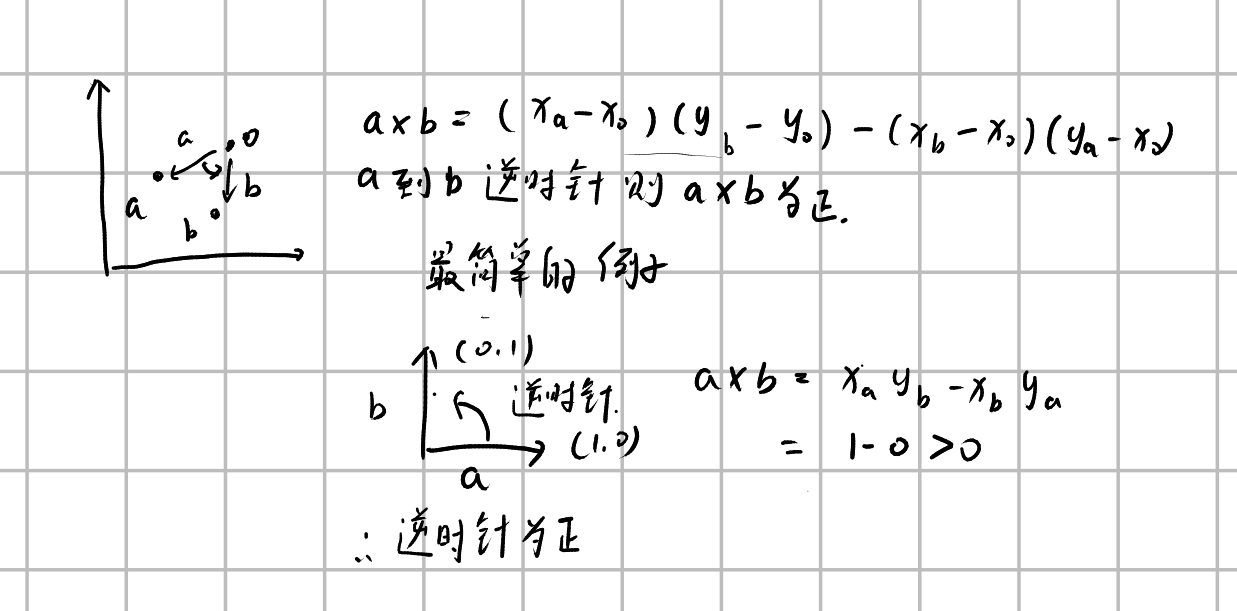 a × b = (x_a - x_0)(y_b - y_0) - (x_b - x_0)(y_a - x_0)
a o
b
a
b
a到b逆时针则a×b为正.
最简单的例子
(0.1)
b 逆时针.
(1.0)
a
a × b = x_a y_b - x_b y_a
= 1 - 0 > 0
∴ 逆时针为正